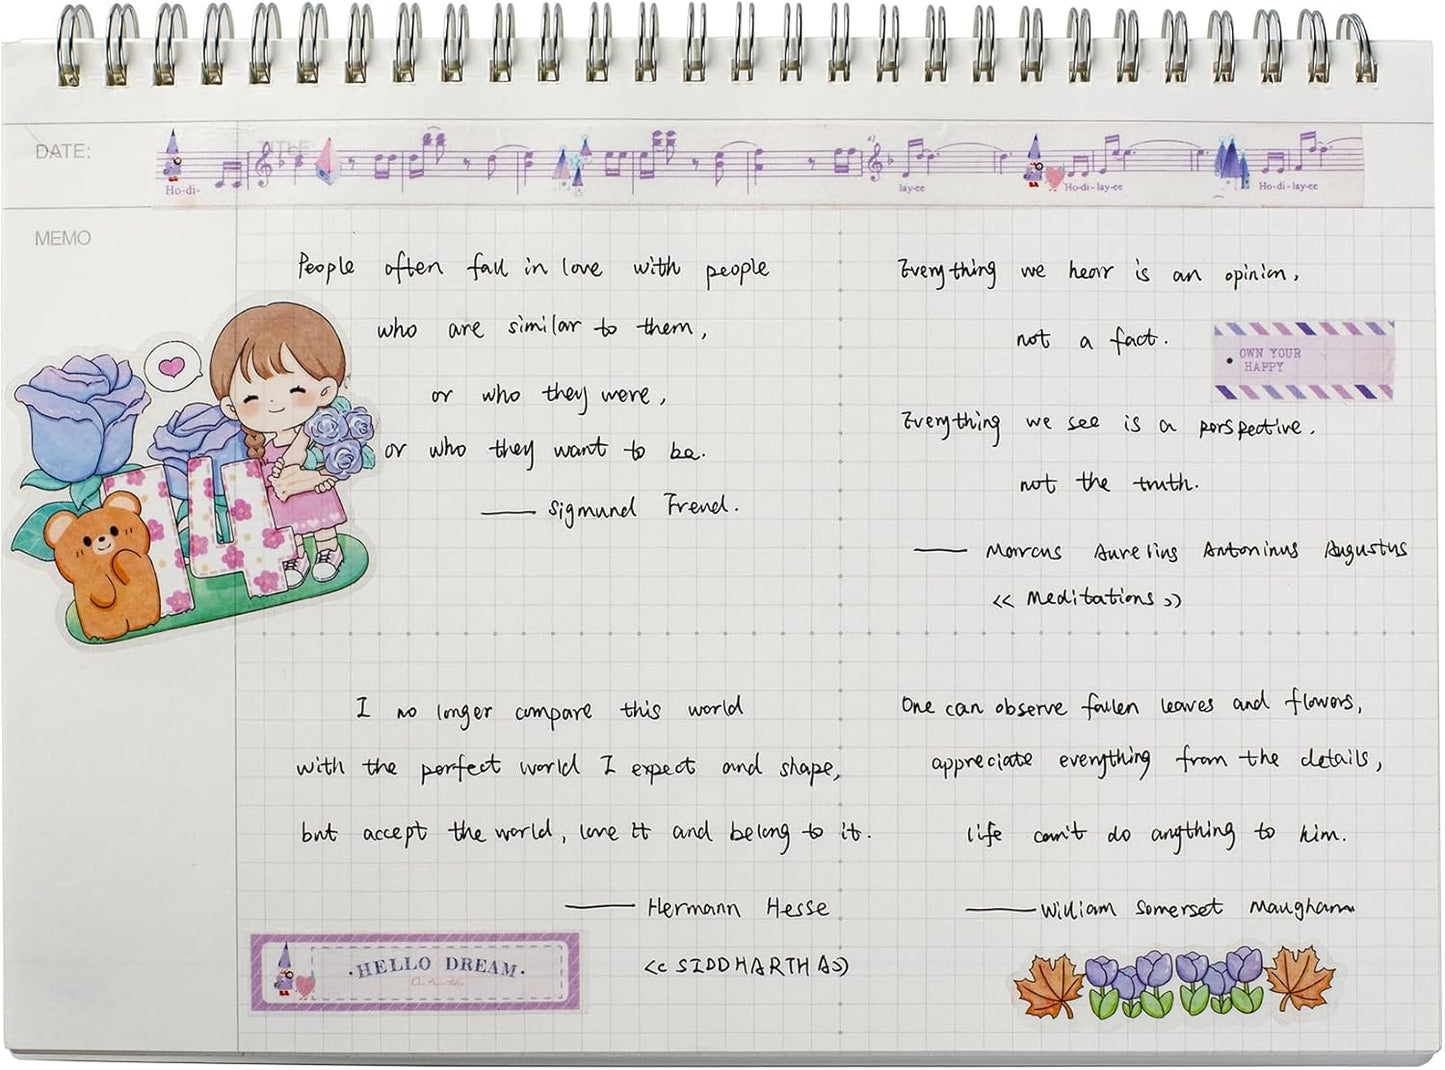 DATE:
TITLE:
Ho-di-
lay-ee
Ho-di-lay-ee
Ho-di-lay-ee
MEMO
People often fall in love with people
who are similar to them,
or who they were,
or who they want to be.
—— Sigmund Frend.
Everything we hear is an opinion,
not a fact.
OWN YOUR
HAPPY
Everything we see is a perspective.
not the truth.
—— Marcus Aurelius Antoninus Augustus
<< Meditations >>
14
I no longer compare this world
with the perfect world I expect and shape,
but accept the world, love it and belong to it.
—— Hermann Hesse
<< SIDDHARTHA >>
One can observe fallen leaves and flowers,
appreciate everything from the details,
life can't do anything to him.
—— William Somerset Maugham
·HELLO DREAM·